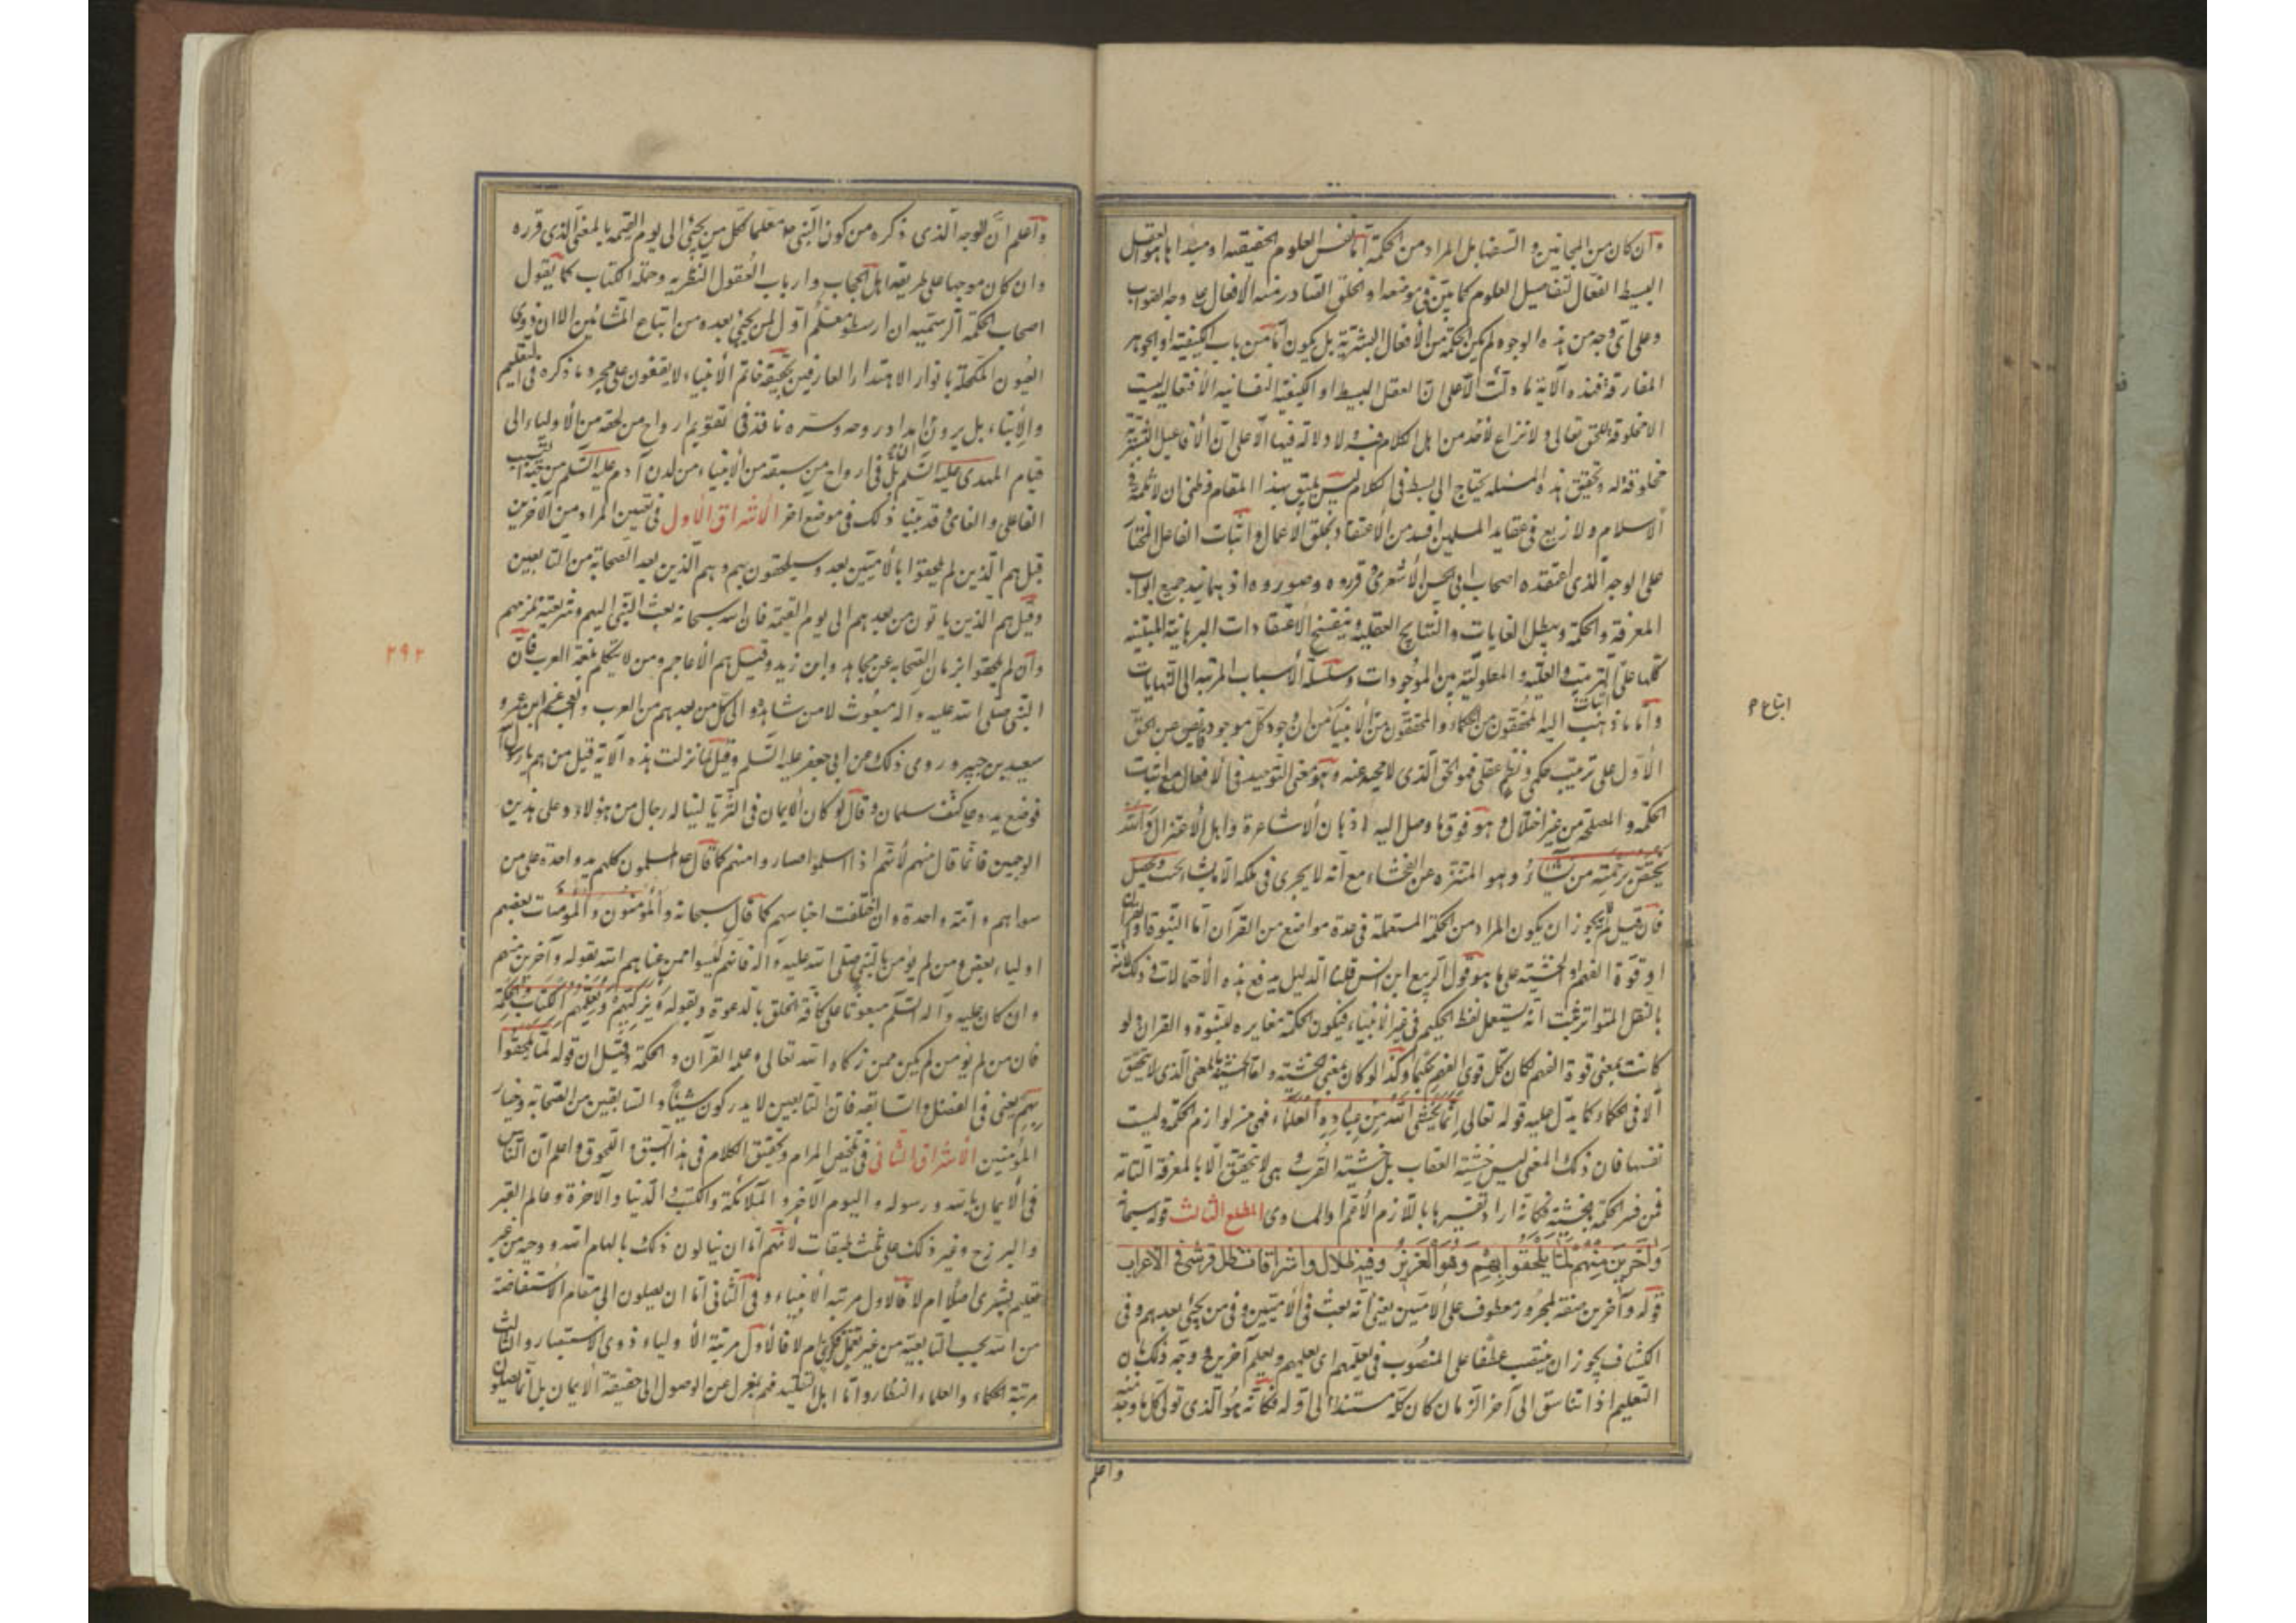 وان كان من المجانين و السفها بل المراد من الحكمة اما نفس العلوم الحقيقيه او مبدأها هو العقل
البسيط الفعال لتفاصيل العلوم كما بيّن فى موضعه او الخلق الصادر منه الأفعال على وجه الصواب
وعلى اىّ وجه من هذه الوجوه لم يكن الحكمة من الأفعال البشرية بل يكون اما من باب الكيفية او الجواهر
المفارقة فهذه الآية ما دلّت الّا على انّ العقل البسيط او الكيفية النفسانية الأنفعاليه ليست
الا مخلوقة للحق تعالى ولا نزاع لأحد من اهل الكلام فيه ولا دلالة فيها الّا على انّ الأفاعيل البشريّة
مخلوقة له وتحقيق هذه المسئلة يحتاج الى بسط فى الكلام ليس يليق بهذا المقام وظنى ان لا ثلمة فى
الاسلام ولا زيغ فى عقايد المسلمين افسد من الاعتقاد بخلق الأعمال و اثبات الفاعل المختار
على الوجه الّذى اعتقده اصحاب ابى الحسن الأشعرى و قرروه وصوروه اذ بها ينسد جميع ابواب
المعرفة و الحكمة ويبطل الغايات و النتايج العقلية و ينفسخ الأعتقادات البرهانية المبتنيه
كلّها على الترتيب والعلّية و المعلوليّة بين الموجودات وسلسلة الأسباب المرتبة الى النهايات
وأمّا ما ذهب اليه المحققون من الحكماء والمحققون من الأنبياء من ان وجود كل موجود فايض عن الحق
ابتاع م
الأوّل على ترتيب حكمى ونظم عقلى فهو الحق الّذى لا محيد عنه وهو معنى التوحيد فى الأفعال مع اثبات
الحكمة و المصلحة من غير اختلال و هو فوق ما وصل اليه اذهان الأشاعرة واهل الأعتزال وَاللّهُ
يَختصّ برَحْمَتِه مَن يَشاءُ وهو المتنزه عن الفحشاء مع انّه لا يجرى فى ملكه الا ما يشاء
فان قيل لم يجوز ان يكون المراد من الحكمة المستعملة فى عدة مواضع من القرآن امّا النبوّة او القرآن
او قوة الفهم او الخشية على ما هو قول الربيع ابن انس قلنا الدليل يدفع هذه الأحتمالات و ذلك لانّه
بالنقل المتواتر ثبت انّه يستعمل لفظ الحكيم فى غير الأنبياء فيكون الحكمة مغايره للنبوة و القرآن ولو
كانت بمعنى قوة الفهم لكان كل قوى الفهم حكيما وكذا لو كان بمعنى الخشيه و امّا الخشية بالمعنى الذى لا يتحقق
الا فى الحكماء كما يدلّ عليه قوله تعالى إنّما يَخْشَى اللّهَ مِنْ عِبادِهِ العُلَمٰؤا فهى من لوازم الحكمة وليست
نفسها فان ذلك المعنى ليس خشية العقاب بل خشية القرب وهى لا تتحقق الّا بالمعرفة التامّة
فمن فسر الحكمة بخشية فكانّه اراد تفسيرها باللّازم الأعم او المساوى المطلع الثالث قوله سبحانه
وَآخَرينَ مِنْهُمْ لَمّا يلْحَقُوا بِهِمْ وَهُوَ العَزيزُ وفيه ظلال و اشراقات ظل فرشى فى الاعراب
قوله وآخرين صفة لمجرور معطوف على الأميّين يعنى أنّه بعث فى الأميّين وفى من يجئ بعدهم وفى
الكشاف يجوز ان ينتصب عطفًا على المنصوب فى يعلّمهم اى يعلمهم ويعلم آخرين و وجه ذلك بان
التعليم اذا تناسق الى آخر الزمان كان كلّه مستندا الى اوّله فكأنّه هو الّذى تولّى كل ما وجد منه
واعلم
واعلم انّ الوجه الّذى ذكره من كون النّبى ص معلما لكل من يجئ الى يوم القيمه بالمعنى الّذى قرره
وان كان موجها على طريقة اهل الحجاب وارباب العقول النظريه وحملة الكتاب كما يقول
اصحاب الحكمة الرسميه ان ارسطو معلّم اوّل لمن يجئ بعده من اتباع المشائين الا ان ذوى
العيون المكحلة بانوار الاهتداء العارفين بحقيقة خاتم الأنبياء لا يقفون على مجرد ما ذكره فى التعليم
والأنباء بل يرون امداد روحه وسرّه نافذ فى تقويم ارواح من لحقه من الأولياء الى
قيام المهدى عليه السّلم بل فى ارواح من سبقه من الأنبياء من لدن آدم عليه السّلم من جهة السبب
الفاعلى و الغائى و قد بيّنا ذلك فى موضع اخر الأشراق الأول فى تعيين المراد من الآخرين
قيل هم الّذين لم يلحقوا بالأميّين بعد وسيلحقون بهم وهم الّذين بعد الصحابة من التابعين
وقيل هم الذين ياتون من بعدهم الى يوم القيمة فان الله سبحانه بعث النّبى اليهم وشريعته تلزمهم
٢٩٢
وان لم يلحقوا بزمان الصحابه عن مجاهد وابن زيد وقيل هم الأعاجم ومن لا يتكلم بلغة العرب فانّ
النّبى صلى الله عليه وآله مبعوث لمن شاهده والى كل من بعدهم من العرب و العجم عن ابن عمر و
سعيد بن جبير و روى ذلك عن ابى جعفر عليه السّلم وقيل لمّا نزلت هذه الآية قيل من هم يا رسول
فوضع يده على كتف سلمان و قال لو كان الأيمان فى الثريا لنٰاله رجال من هؤلاء وعلى هذين
الوجهين فانّما قال منهم لأنهم اذا اسلموا صاروا منهم كما قال ع المسلمون كلهم يد واحدة على من
سواهم وامّة واحدة وان اختلفت اجناسهم كما قال سبحانه والمُؤمِنُون والمؤمنات بعضهم
اولياء بعض و من لم يؤمن بالنّبى صلى الله عليه وآله فانهم ليسوا ممن عناهم الله بقوله وآخرين منهم
و ان كان عليه وآله السّلم مبعوثا على كافة الخلق بالدعوة ولقوله وَيُزَكّيهِمْ وَيُعَلّمُهُمُ الكِتابَ والحِكْمَة
فان من لم يؤمن لم يكن ممن زكاه الله تعالى و علمه القرآن و الحكمة وقيل ان قوله لَمّا يَلْحَقُوا
بِهِم يعنى فى الفضل و السابقه فان التابعين لا يدركون شيئاً و السابقين من الصحابة وخيار
المؤمنين الأشراق الثانى فى تلخيص المرام وتحقيق الكلام فى هذا السبق و اللحوق و اعلم ان الناس
فى الأيمان بالله ورسوله و اليوم الآخر و الملائكة والكتب والدنيا و الآخرة وعالم القبر
والبرزخ وغير ذلك على ثلث طبقات لأنّهم امّا ان ينالون ذلك بالهام الله و وحيه من غير
تعليم بشرى اصلا ام لا فالاول مرتبة الأنبياء وفى الثانى امّا ان يصلون الى مقام الأستفاضة
من الله بحسب التابعية من غير تعمّل فكرى ام لا فالأول مرتبة الأولياء ذوى الاستبصار و الثالث
مرتبة الحكماء و العلماء النظار و امّا اهل التقليد فهم بمعزل عن الوصول الى حقيقة الأيمان بل انّما يصلون